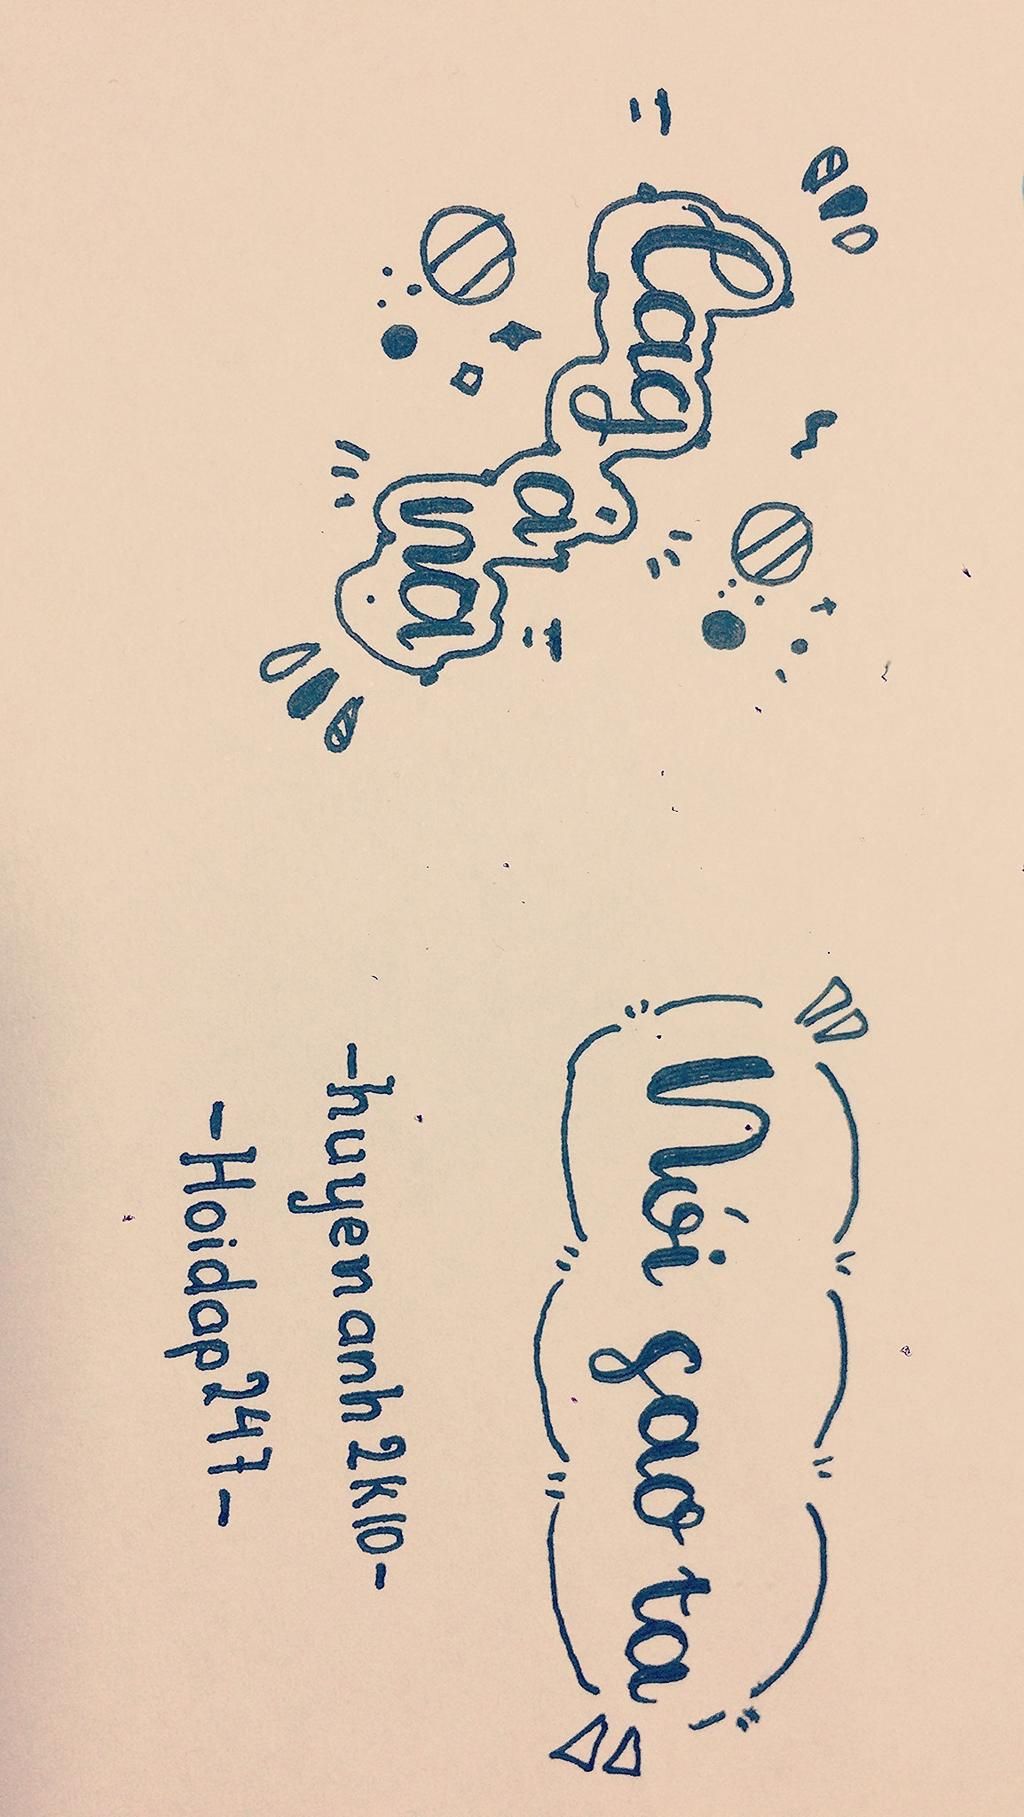 Nói gao ta
-huyenanh2k10-
-Hoidap247-